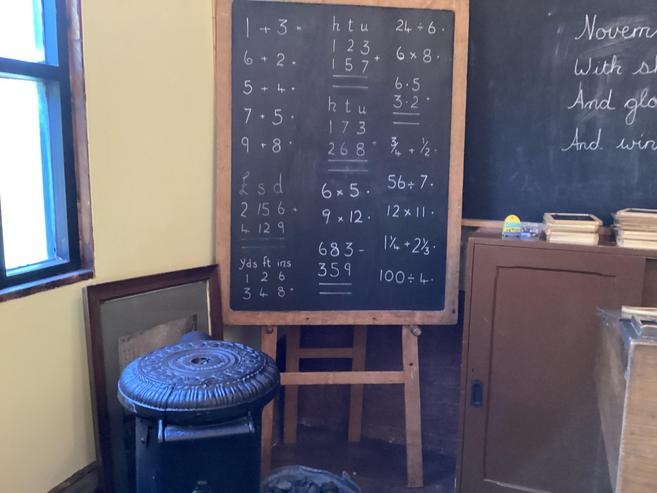 1 + 3 =
6 + 2 ·
5 + 4 ·
7 + 5 ·
9 + 8 ·
£ s d
2 15 6 +
4 12 9
yds ft ins
1 2 6
3 4 8 ·
h t u
1 2 3
1 5 7 +
h t u
1 7 3
2 6 8
6 × 5 ·
9 × 12 ·
6 8 3 -
3 5 9
24 ÷ 6 ·
6 × 8 ·
6·5
3·2
¾ + ½ ·
56 ÷ 7 ·
12 × 11 ·
1¼ + 2⅓ ·
100 ÷ 4 ·
With
And
And